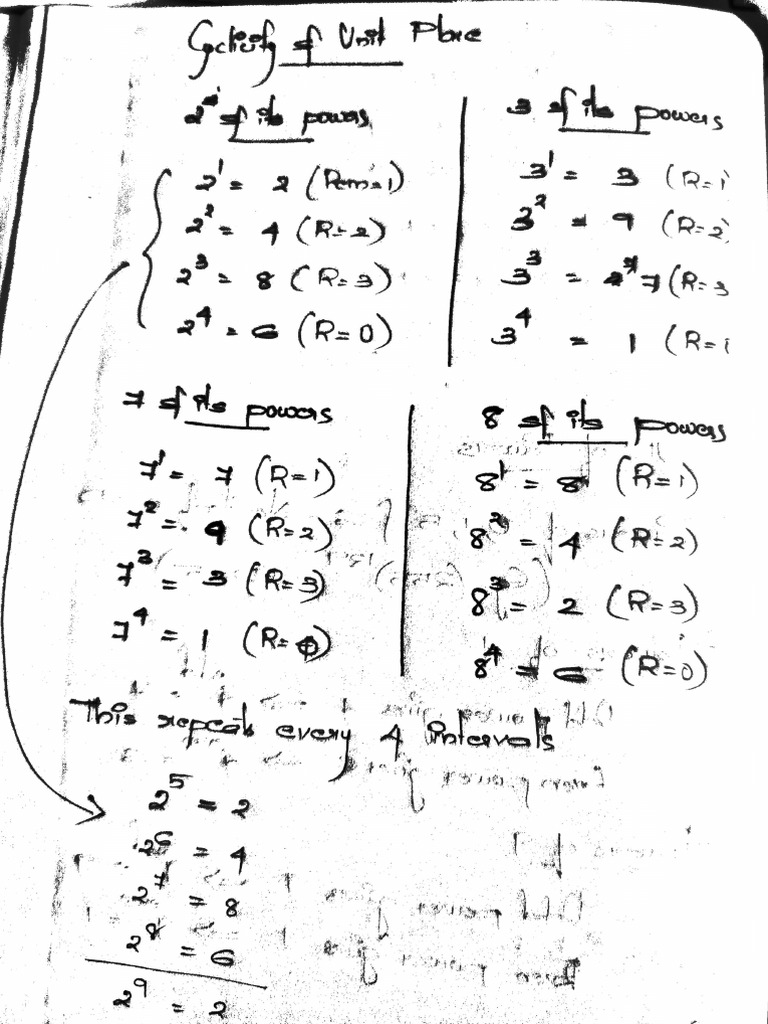 Cyclicity of Unit Place
2 of its powers
2¹ = 2 (Rem=1)
2² = 4 (R=2)
2³ = 8 (R=3)
2⁴ = 6 (R=0)
3 of its powers
3¹ = 3 (R=1
3² = 9 (R=2)
3³ = 7 (R=3
3⁴ = 1 (R=
7 of its powers
7¹ = 7 (R=1)
7² = 9 (R=2)
7³ = 3 (R=3)
7⁴ = 1 (R=0)
8 of its powers
8¹ = 8 (R=1)
8² = 4 (R=2)
8³ = 2 (R=3)
8⁴ = 6 (R=0)
This repeats every 4 intervals
2⁵ = 2
2⁶ = 4
2⁷ = 8
2⁸ = 6
2⁹ = 2